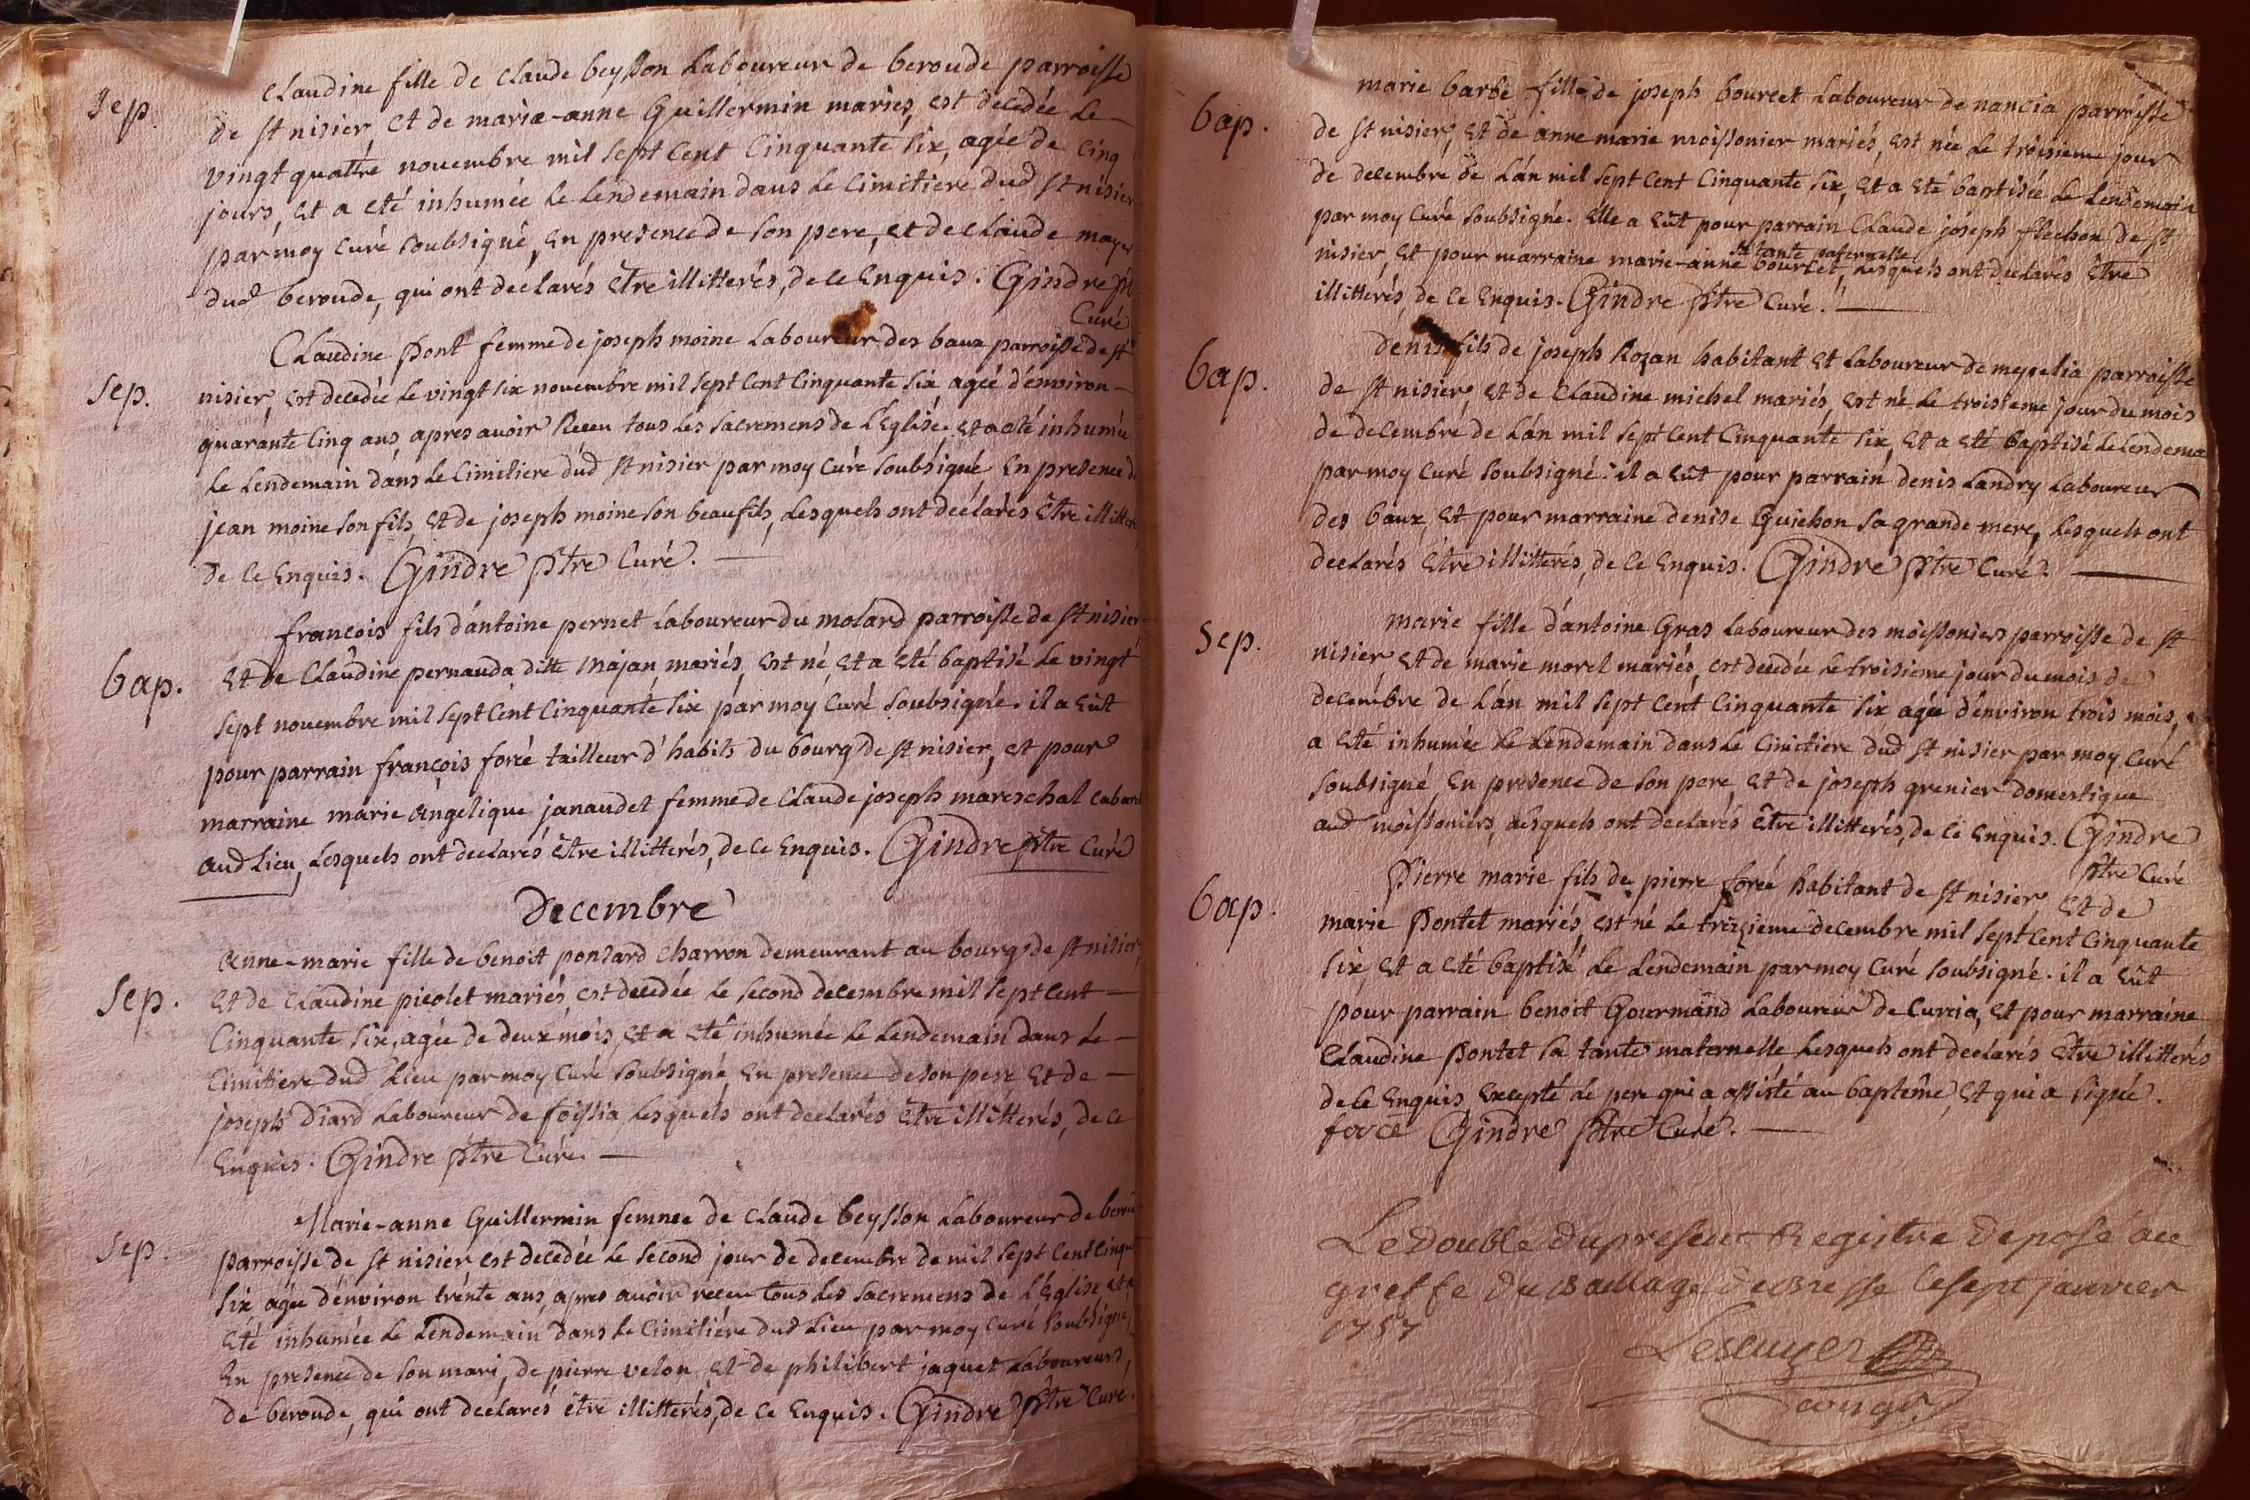 Sep.
Claudine fille de Claude beysson Laboureur de beroude parroisse
de st nisier, et de marie-anne Guillermin mariés, est decedée Le
vingt quattre novembre mil sept cent Cinquante six, agée de cinq
jours, et a eté inhumée le lendemain dans Le Cimitiere dud st nisier
par moy Curé soubsigné, En presence de son pere, et de Claude
dud beroude, qui ont declarés être illitterés, de ce Enquis. Gindre ptre
Curé
Sep.
Claudine Pont femme de joseph moine Laboureur des baux parroisse de st
nisier, est decedée Le vingt six novembre mil sept Cent Cinquante six, agée d'environ
quarante Cinq ans apres avoir Receu tous Les sacremens de L'Eglise, et a eté inhumée
Le Lendemain dans Le Cimitiere dud st nisier par moy Curé soubsigné, En presence de
jean moine son fils, et de joseph moine son beaufils, Lesquels ont declarés être illitterés
De ce Enquis. Gindre Ptre Curé.
bap.
françois fils d'antoine pernet Laboureur du molard parroisse de st nisier
et de Claudine pernauda ditte Majan, mariés, est né, et a eté baptisé Le vingt
sept novembre mil sept Cent Cinquante six par moy Curé soubsigné. il a eût
pour parrain françois forcé tailleur d'habits du bourg de st nisier, et pour
marraine marie Angelique janaudet femme de Claude joseph mareschal
aud Lieu, Lesquels ont declarés être illitterés, de ce Enquis. Gindre Ptre Curé
Decembre
Sep.
Anne-marie fille de benoit ponsard Charron demeurant au bourg de st nisier,
et de Claudine picolet mariés, est decedée Le second decembre mil sept Cent
Cinquante six, agée de deux mois, et a eté inhumée Le Lendemain dans Le
Cimitiere dud Lieu par moy Curé soubsigné, En presence de son pere et de
joseph Diard Laboureur de foissia, Lesquels ont declarés être illitterés, de ce
Enquis. Gindre ptre Curé.
Sep.
Marie-anne Guillermin femme de Claude beysson Laboureur de beroude
parroisse de st nisier est decedée Le second jour de decembre de mil sept Cent Cinqu
six agée d'environ trente ans, apres avoir receu tous Les sacremens de L'Eglise et a
eté inhumée Le Lendemain dans Le Cimitiére dud Lieu par moy Curé soubsigné,
En presence de son mari, de pierre velon, et de philibert jaquet Laboureurs,
de beroude, qui ont declarés être illitterés, de ce Enquis. Gindre Ptre Curé.
bap.
marie barbe fille de joseph bourcet Laboureur de nancia parroisse
de st nisier, et de anne marie moissonier mariés, est née Le troisieme jour
de decembre de L'an mil sept Cent Cinquante six, et a eté baptisée Le Lendemain
par moy Curé soubsigné. Elle a eût pour parrain Claude joseph flechon de st
sa tante paternelle
nisier, et pour marraine marie-anne bourcet, Lesquels ont declarés être
illitterés, de ce Enquis. Gindre Ptre Curé.
bap.
denis fils de joseph Rozan habitant et Laboureur de mepelia parroisse
de st nisier, et de Claudine michel mariés, est né Le troisieme jour du mois
de decembre de L'an mil sept Cent Cinquante six, et a eté baptisé Le Lendema
par moy Curé soubsigné. il a eût pour parrain denis Landry Laboureur
des baux, et pour marraine denise Guichon sa grande mere, Lesquels ont
declarés être illitterés, de ce Enquis. Gindre Ptre Curé.
Sep.
marie fille d'antoine Gras Laboureur des moissoniers parroisse de st
nisier et de marie morel mariés, est decedée Le troisieme jour du mois de
decembre de L'an mil sept Cent Cinquante six agée d'environ trois mois, et
a eté inhumée Le Lendemain dans Le Cimitiere dud st nisier par moy Curé
soubsigné En presence de son pere, et de joseph grenier domestique
aud moissoniers, Lesquels ont declarés être illitterés, de ce Enquis. Gindre
Ptre Curé
bap.
Pierre marie fils de pierre forcé habitant de st nisier, et de
marie Pontet mariés, est né Le treizieme decembre mil sept Cent Cinquante
six, et a eté baptisé Le Lendemain par moy Curé soubsigné. il a eût
pour parrain benoit Gourmand Laboureur de Curcia, et pour marraine
Claudine Pontet sa tante maternelle, Lesquels ont declarés être illitterés
de ce Enquis, Excepté Le pere qui a assisté au baptême, et qui a signé.
force Gindre Ptre Curé.
Le Double du present Registre Deposé au
greffe du Baillage de Bresse le sept janvier
1757
Lescuyer